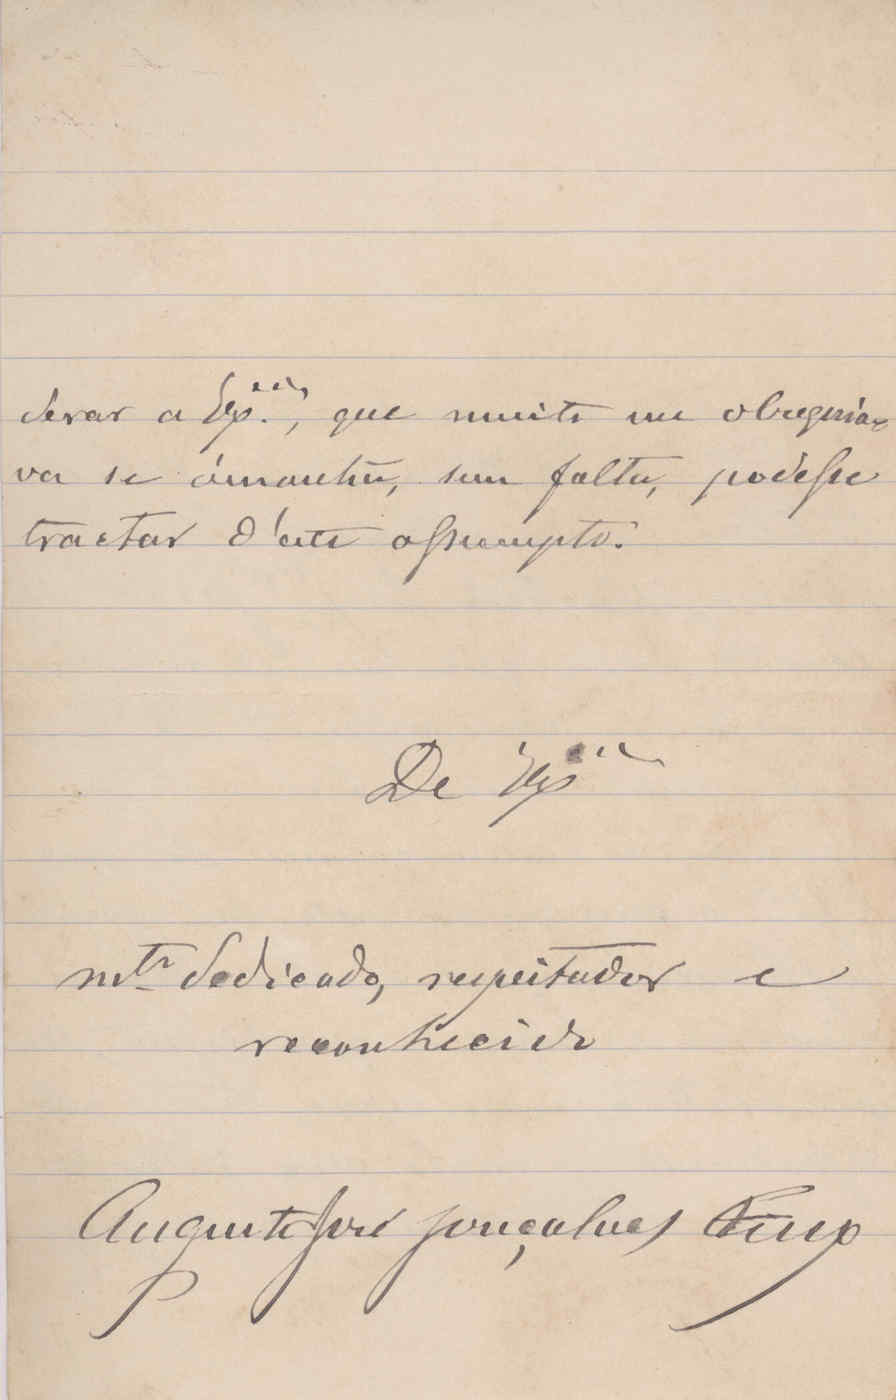 derar a Exª., que muito me obsequia-
va se ámanhã, sem falta, podesse
tractar d'este assumpto.
De Exª
mto dedicado, respeitador e
reconhecido
Augusto José Gonçalves